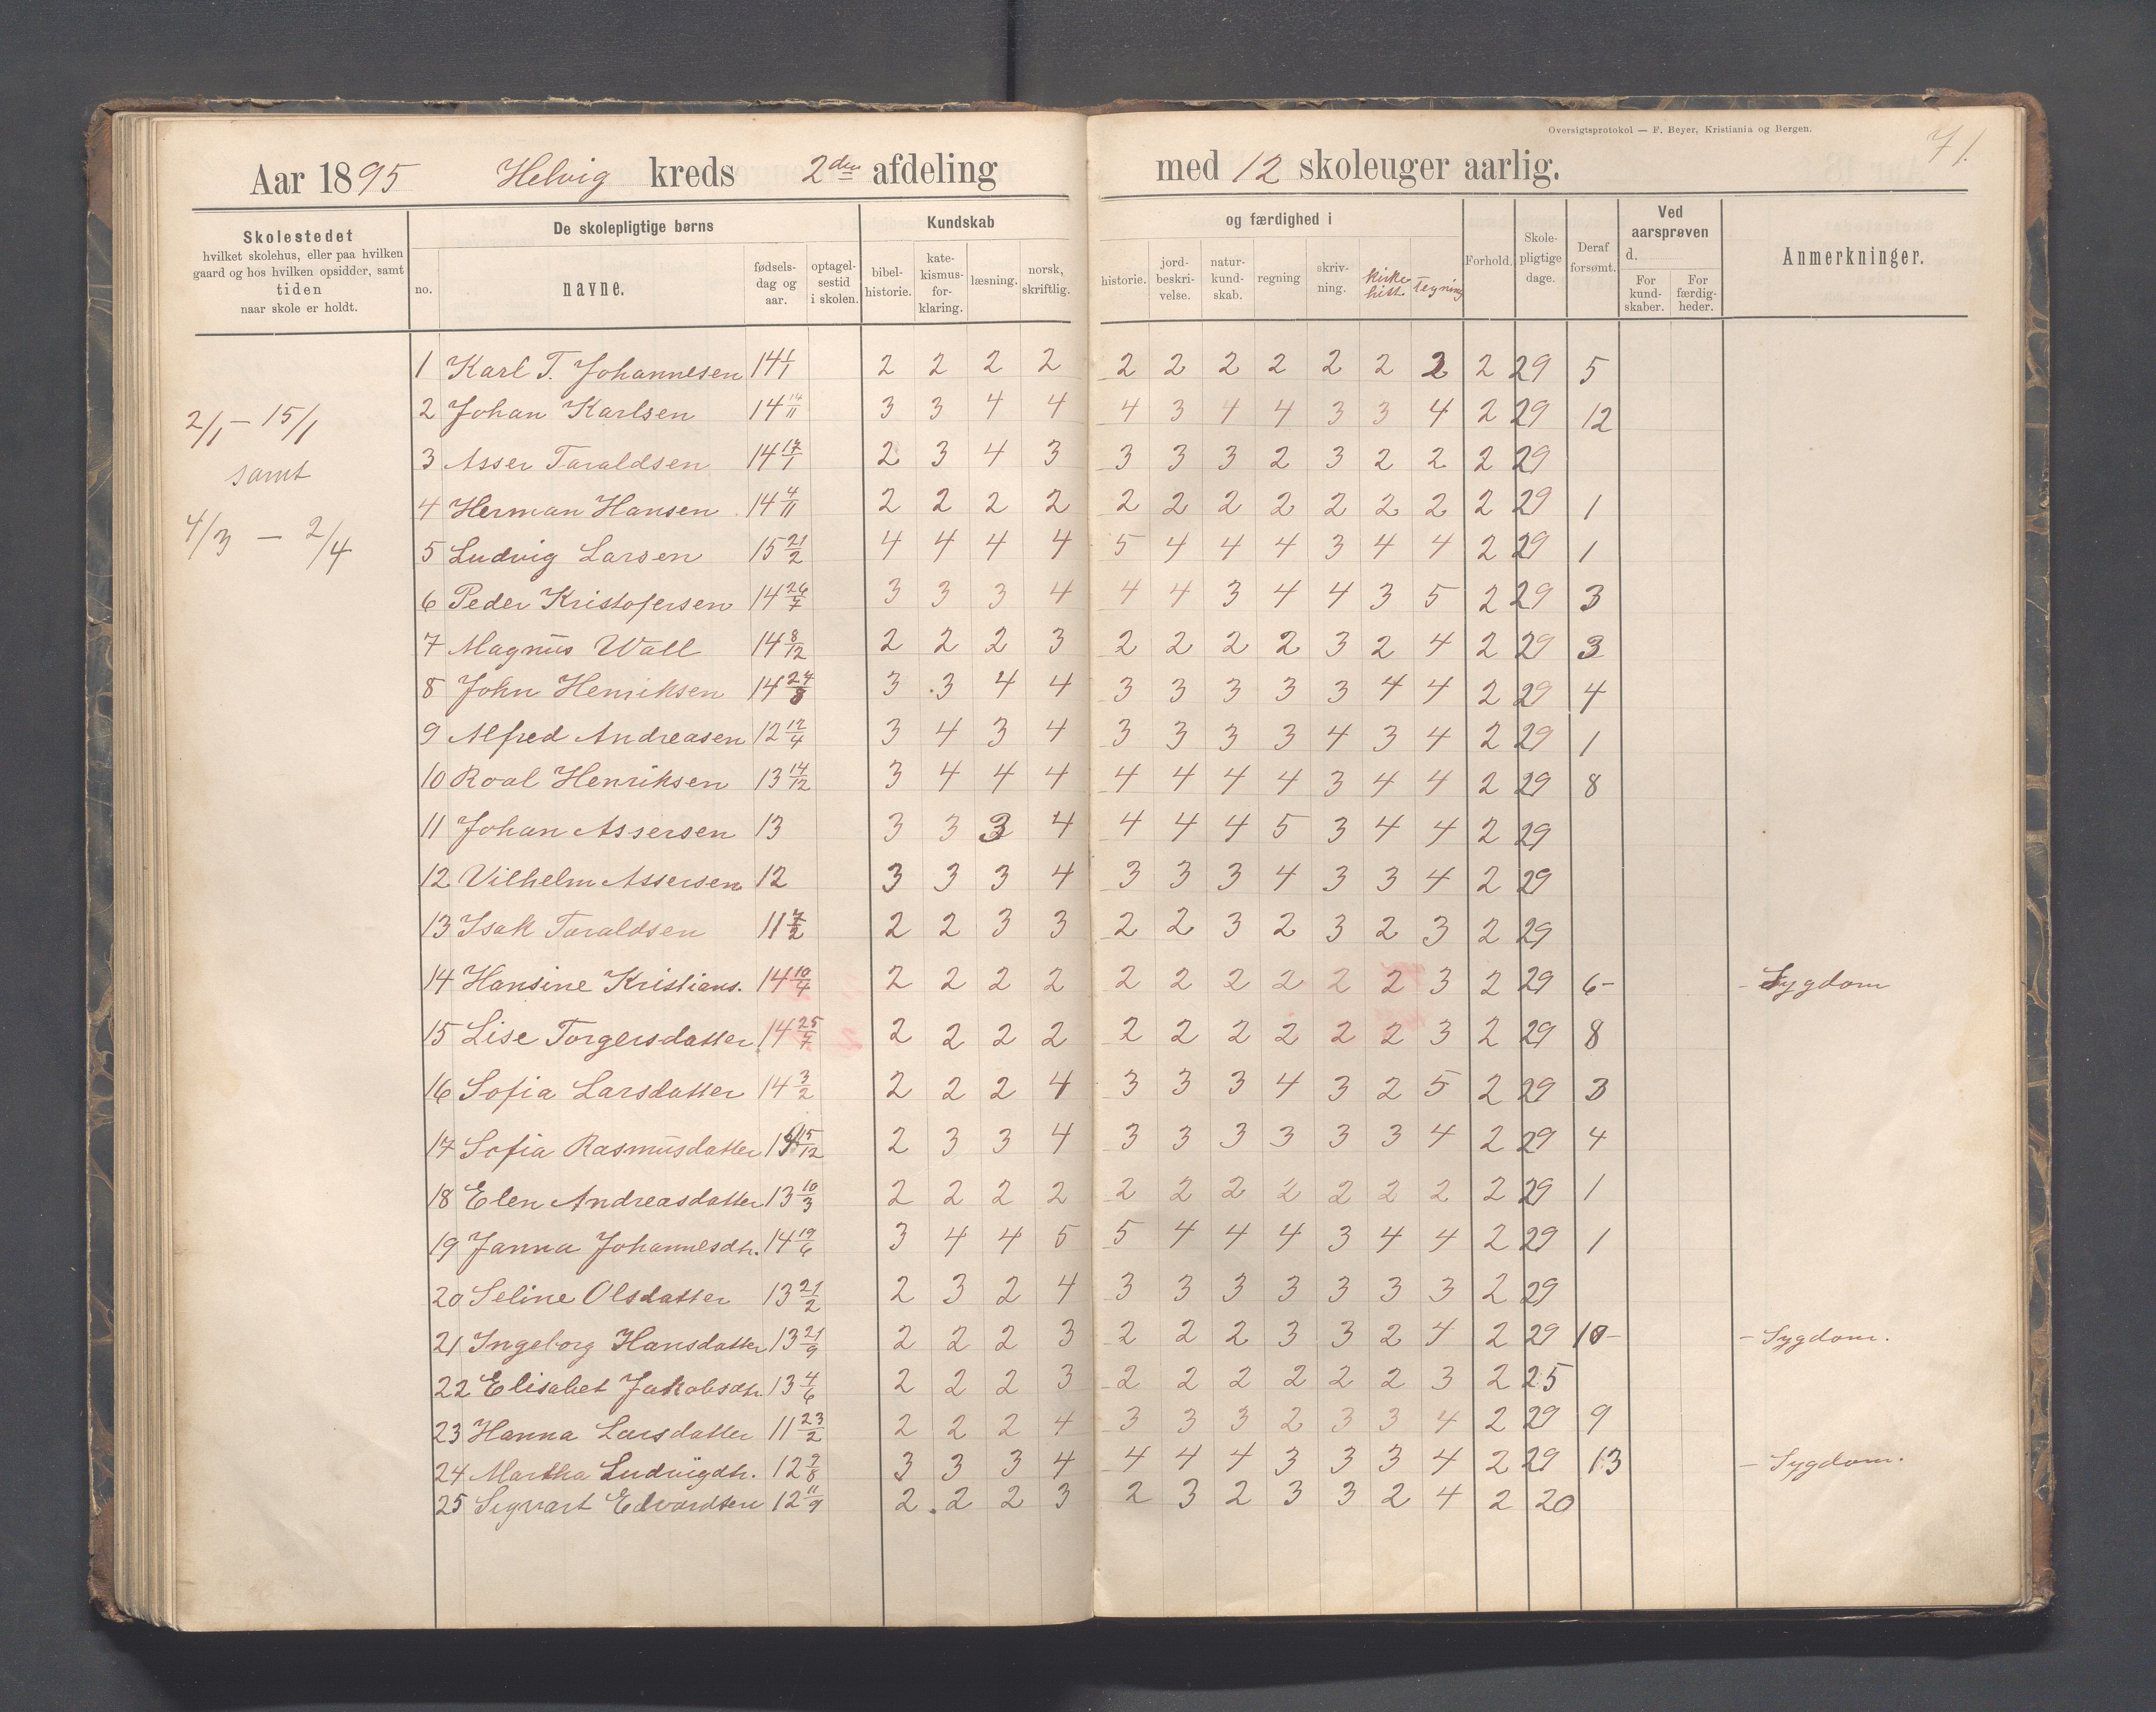 Oversigtsprotokol — F. Beyer, Kristiania og Bergen.
71.
Aar 1895 Helvig kreds 2den afdeling med 12 skoleuger aarlig.
Skolestedet
hvilket skolehus, eller paa hvilken
gaard og hos hvilken opsidder, samt
tiden
naar skole er holdt.
De skolepligtige børns
no.
navne.
fødsels-
dag og
aar.
optagel-
sestid
i skolen.
Kundskab
bibel-
historie.
kate-
kismus-
for-
klaring.
læsning.
norsk,
skriftlig.
og færdighed i
historie.
jord-
beskri-
velse.
natur-
kund-
skab.
regning
skriv-
ning.
Kirke
hist.
Tegning
Forhold.
Skole-
pligtige
dage.
Deraf
forsømt.
Ved
aarsprøven
d.
For
kund-
skaber.
For
færdig-
heder.
Anmerkninger.
2/1 – 15/1
samt
4/3 – 2/4
1 Karl T. Johannesen 14 1/1 2 2 2 2 2 2 2 2 2 2 2 2 29 5
2 Johan Karlsen 14 14/11 3 3 4 4 4 3 4 4 3 3 4 2 29 12
3 Asser Taraldsen 14 17/1 2 3 4 3 3 3 3 2 3 2 2 2 29
4 Herman Hansen 14 4/11 2 2 2 2 2 2 2 2 2 2 2 2 29 1
5 Ludvig Larsen 15 21/2 4 4 4 4 5 4 4 4 3 4 4 2 29 1
6 Peder Kristofersen 14 26/7 3 3 3 4 4 4 3 4 4 3 5 2 29 3
7 Magnus Wall 14 8/12 2 2 2 3 2 2 2 2 3 2 4 2 29 3
8 John Henriksen 14 24/8 3 3 4 4 3 3 3 3 3 4 4 2 29 4
9 Alfred Andreasen 12 12/4 3 4 3 4 3 3 3 3 4 3 4 2 29 1
10 Roal Henriksen 13 14/12 3 4 4 4 4 4 4 4 3 4 4 2 29 8
11 Johan Assersen 13 3 3 3 4 4 4 4 5 3 4 4 2 29
12 Vilhelm Assersen 12 3 3 3 4 3 3 3 4 3 3 4 2 29
13 Isak Taraldsen 11 7/2 2 2 3 3 2 2 3 2 3 2 3 2 29
14 Hansine Kristians. 14 10/4 2 2 2 2 2 2 2 2 2 2 3 2 29 6 – – Sygdom
15 Lise Torgersdatter 14 25/7 2 2 2 2 2 2 2 2 2 2 3 2 29 8
16 Sofia Larsdatter 14 3/2 2 2 2 4 3 3 3 4 3 2 5 2 29 3
17 Sofia Rasmusdatter 15/12 2 3 3 4 3 3 3 3 3 3 4 2 29 4
18 Elen Andreasdatter 13 10/3 2 2 2 2 2 2 2 2 2 2 2 2 29 1
19 Janna Johannesdtr. 14 19/6 3 4 4 5 5 4 4 4 3 4 4 2 29 1
20 Seline Olsdatter 13 21/2 2 3 2 4 3 3 3 3 3 3 3 2 29
21 Ingeborg Hansdatter 13 21/9 2 2 2 3 2 2 2 3 3 2 4 2 29 10 – – Sygdom.
22 Elisabet Jakobsdtr. 13 4/6 2 2 2 3 2 2 2 2 2 2 3 2 25
23 Hanna Larsdatter 11 23/2 2 2 2 4 3 3 3 2 3 3 4 2 29 9
24 Martha Ludvigdtr. 12 7/8 3 3 3 4 4 4 4 3 3 3 4 2 29 13 – Sygdom.
25 Sigvart Edvardsen 12 11/9 2 2 2 3 2 3 2 3 3 2 4 2 20